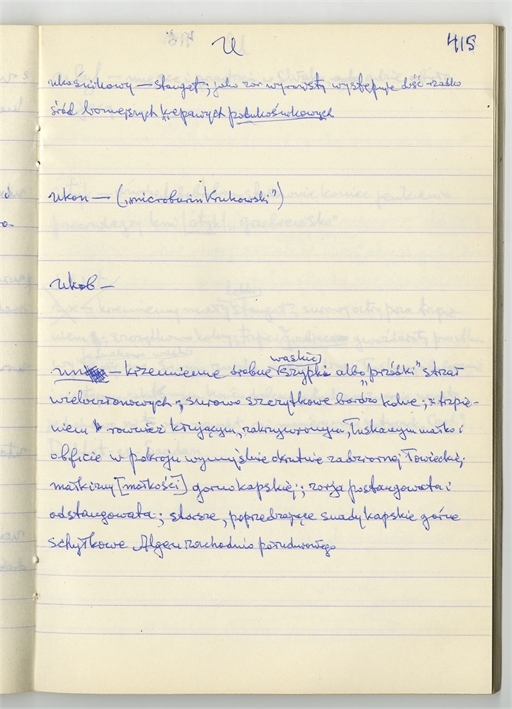 U
415
ukośnikowy — stauget; jako zw wyrosty występuje dość rzadko
śród krępawych półtukośnikowych
Ukon — („microburin Krukowski”)
Ukob —
— krzemienne drobne wąskiej szypki albo „prószki” strzał
wieloczłonowych; surowo szczytkowe bardzo kolne; z trzpie-
niem również kłującym, zakrzywionym, łuskanym małko i
obficie w pokroju wymyślnie okrutnie zadziornej łowieckiej;
[małkości] górnokapskiej; postaugowata i
odstaugowata; starsze, poprzedzające suady kapskie górne
schyłkowe Algeru zachodnio południowego